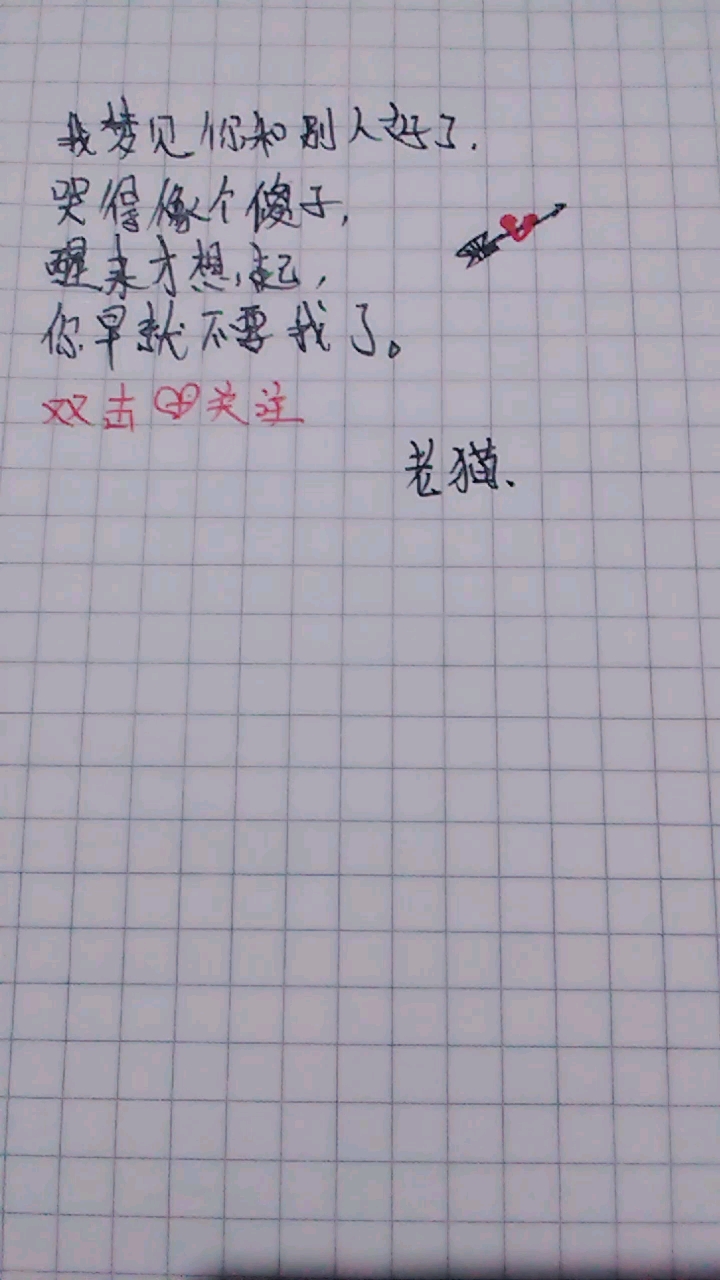 我梦见你和别人好了.
哭得像个傻子,
醒来才想起,
你早就不要我了。
双击❤关注
老猫.